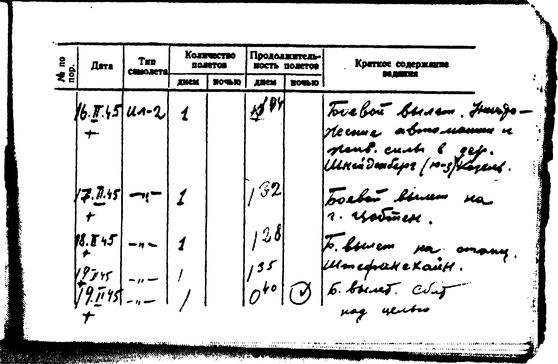 № по пор.
Дата
Тип самолета
Количество полетов
днем
ночью
Продолжительность полетов
днем
ночью
Краткое содержание задания
16.II.45 Ил-2 1 Боевой вылет. Уничто-
жение автомашин и
жив. силы в дер.
(ю-з)
17.II.45 -"- 1 1 32 Боевой вылет на
г. Цобтен.
18.II.45 -"- 1 1 28 Б. вылет на станц.
Штефансхайн.
19.II.45 -"- 1 1 35
19.II.45 -"- 1 0 40 Б. вылет. Сбит
над целью